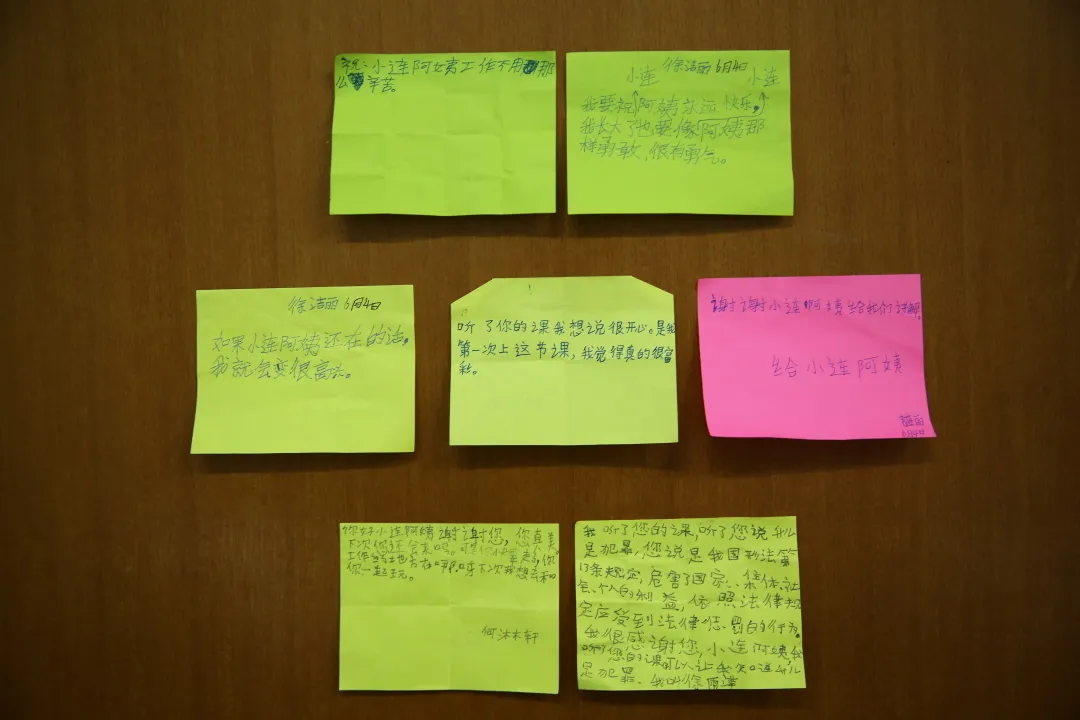 祝:小连阿姨工作不用那
么辛苦。
徐洁丽 6月4日
小连 小连
我要祝阿姨永远快乐,
我长大了也要像阿姨那
样勇敢,很有勇气。
徐洁丽 6月4日
如果小连阿姨还在的话,
我就会变很高兴。
听了你的课我想说很开心。是我
第一次上这节课,我觉得真的很富
彩。
谢谢小连啊姨给我们讲课
给小连阿姨
6月4日
你好小连阿姨谢谢您,您真美
下次你还会来吗。
工作
你一起玩。
何沐轩
我听了您的课,听了您说什么
是犯罪,您说是我国刑法第
13条规定,危害了国家、集体、社
会、个人的利益,依照法律规
定应受到法律惩罚的行为。
我很感谢您,小连阿姨,我
听了您的课可以让我知道什么
是犯罪、我叫徐